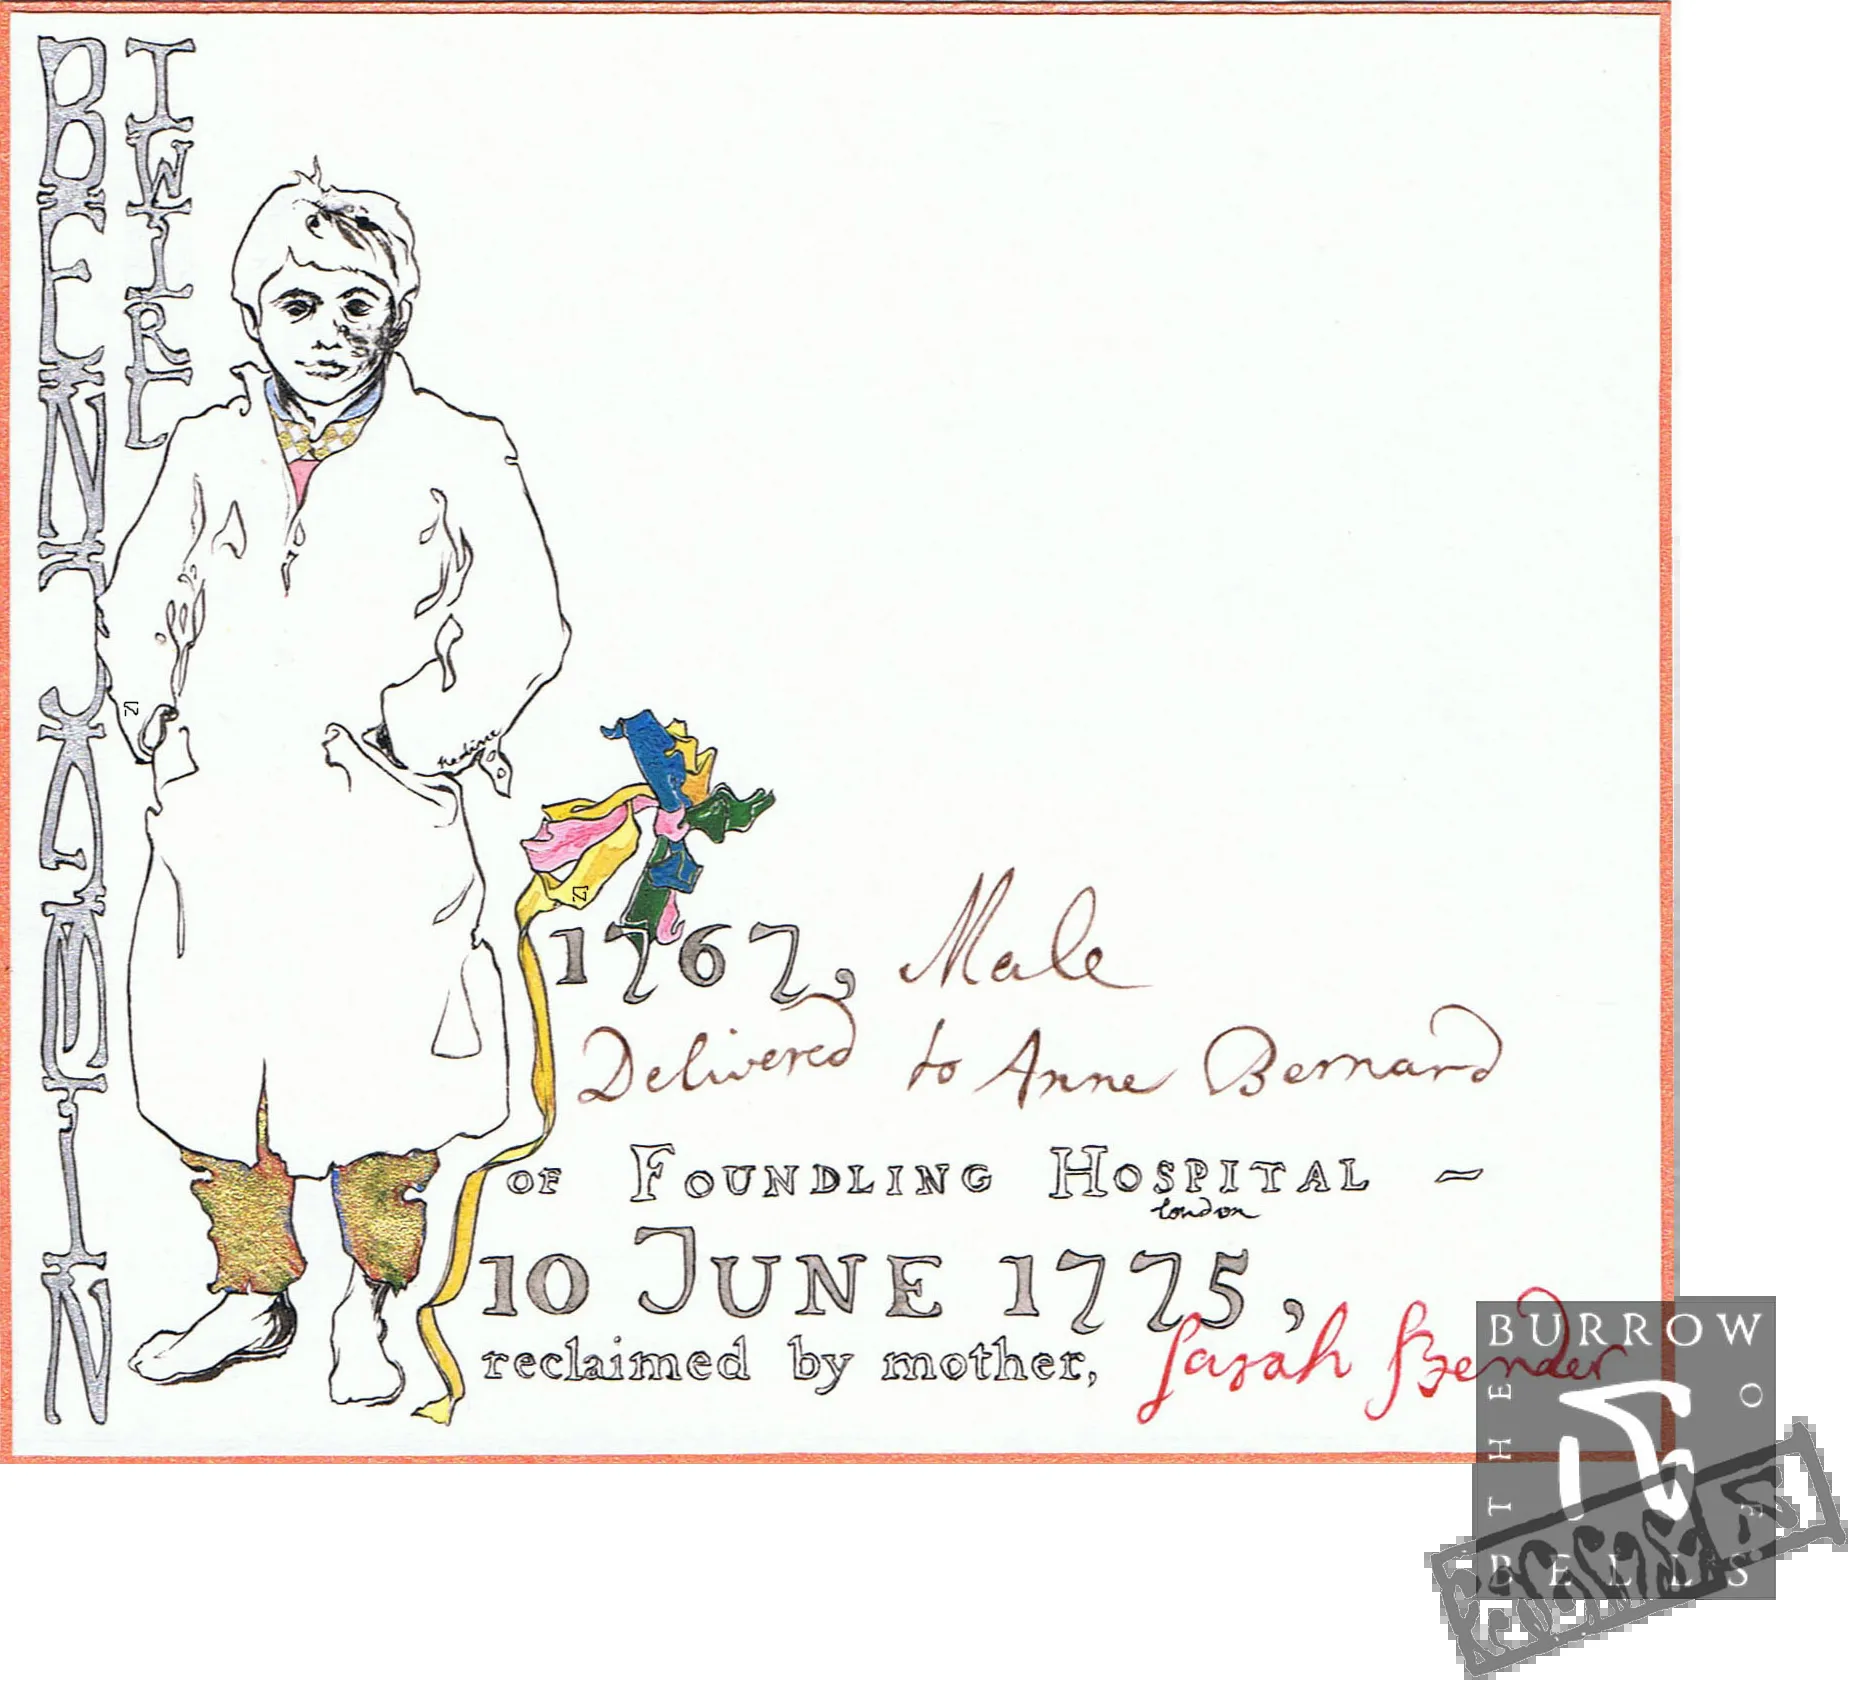 BENJAMIN
TWIRL
1767, Male
Delivered to Anne Bernard
OF FOUNDLING HOSPITAL ~
London
10 JUNE 1775,
reclaimed by mother, Sarah Bender
BURROW
THE
OF
BELLS